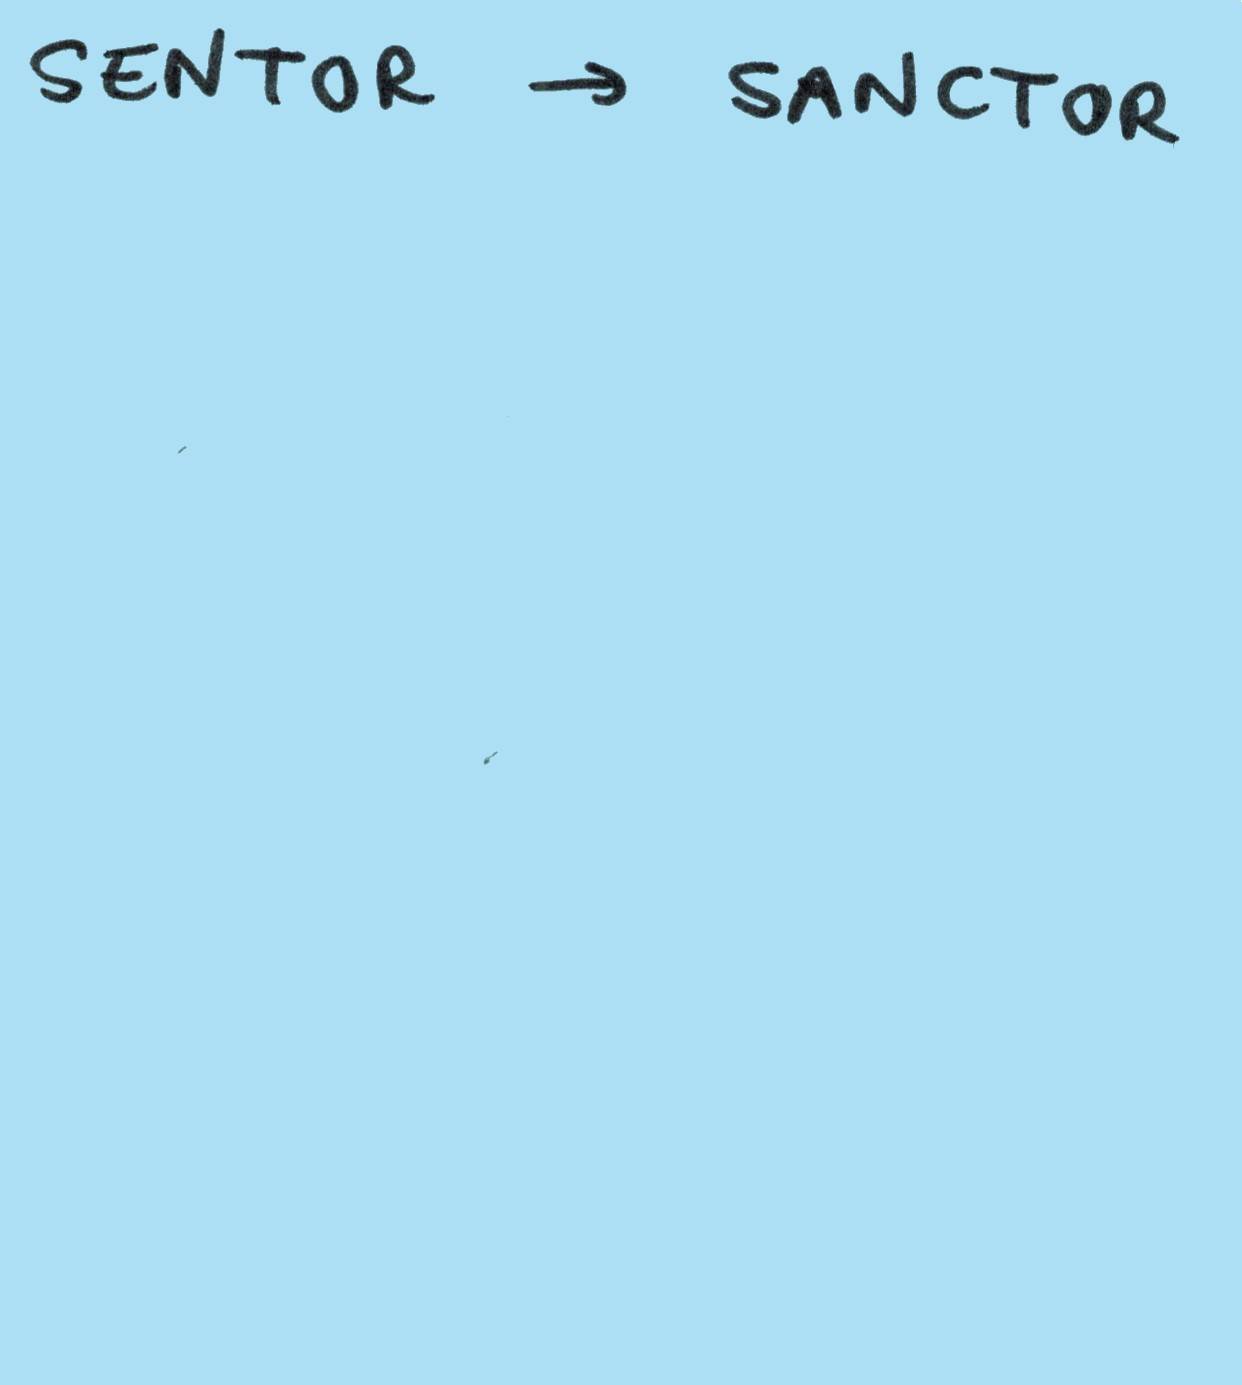 SENTOR → SANCTOR